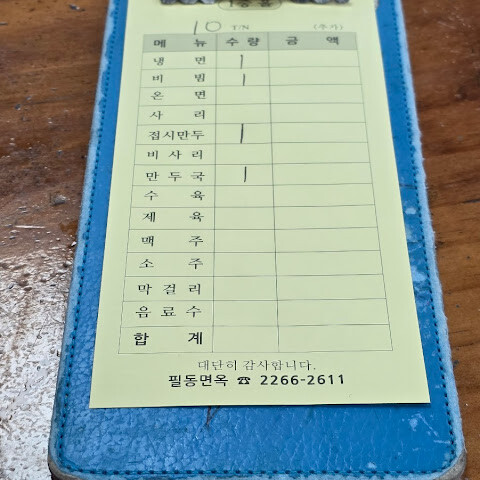 10 T/N (추가)
메 뉴 수 량 금 액
냉 면 1
비 빔 1
온 면
사 리
접시만두 1
비 사 리
만 두 국 1
수 육
제 육
맥 주
소 주
막 걸 리
음 료 수
합 계
대단히 감사합니다.
필동면옥 ☎ 2266-2611